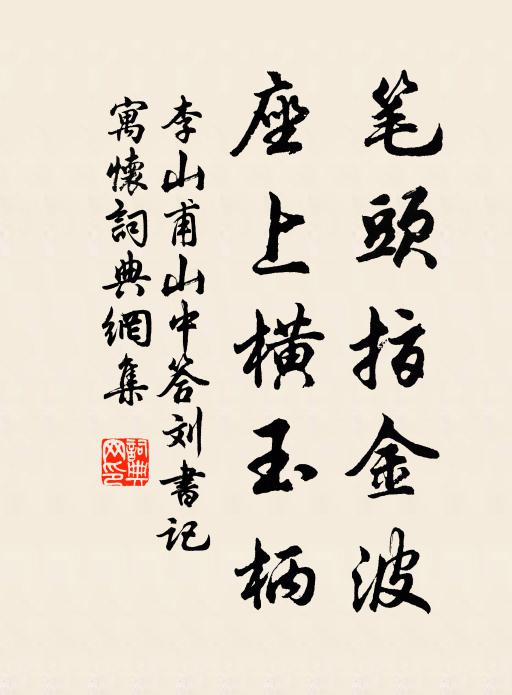 笔頭指金波
座上横玉柄
李山甫山中答刘書記
寓懷詞典網集
詞典网印